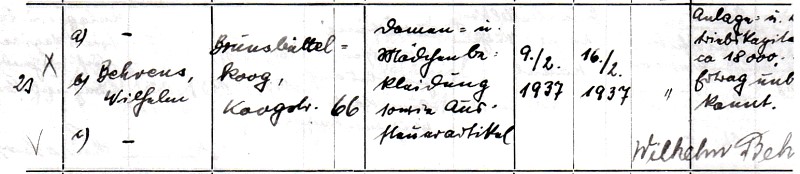 a) –
23 X b) Behrens,
Wilhelm
c) –
Brunsbüttel=
koog,
Koogstr. 66
Damen= u.
Mädchenbe=
kleidung
sowie Aus=
steuerartikel
9./2.
1937
16./2.
1937
"
Anlage= u.
triebskapita
ca 18000,
Ertrag unbe
kannt.
Wilhelm Beh